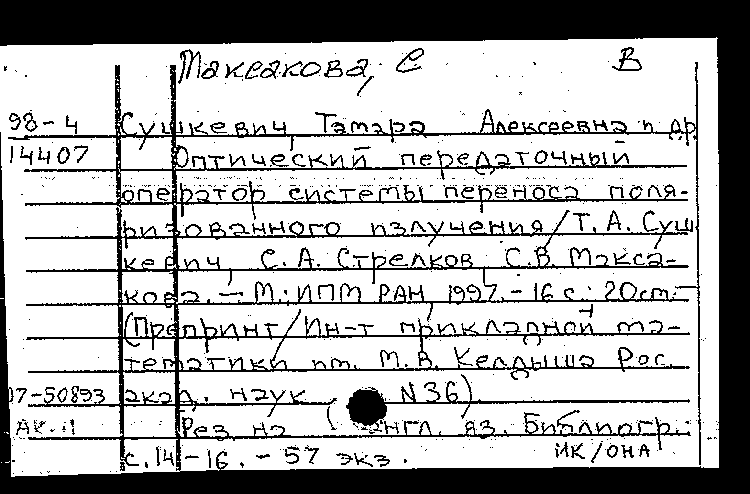 Максакова, С В
98-4 Сушкевич, Тамара Алексеевна и др
14407 Оптический передаточный
оператор системы переноса поля-
ризованного излучения / Т. А. Суш
кевич, С. А. Стрелков, С.В. Макса-
кова. - М.: ИПМ РАН, 1997. - 16 с.: 20см. -
(Препринт / Ин-т прикладной ма-
тематики им. М. В. Келдыша Рос.
07-50893 акад. наук N 36).
АК. Рез. на англ. яз. Библиогр.:
с. 14-16. - 57 экз. ИК/ОНА